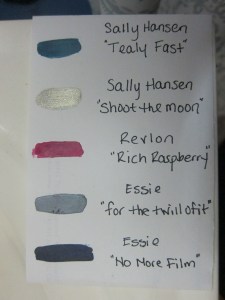 Sally Hansen
"Tealy Fast"
Sally Hansen
"Shoot the moon"
Revlon
"Rich Raspberry"
Essie
"for the twill of it"
Essie
"No More Film"